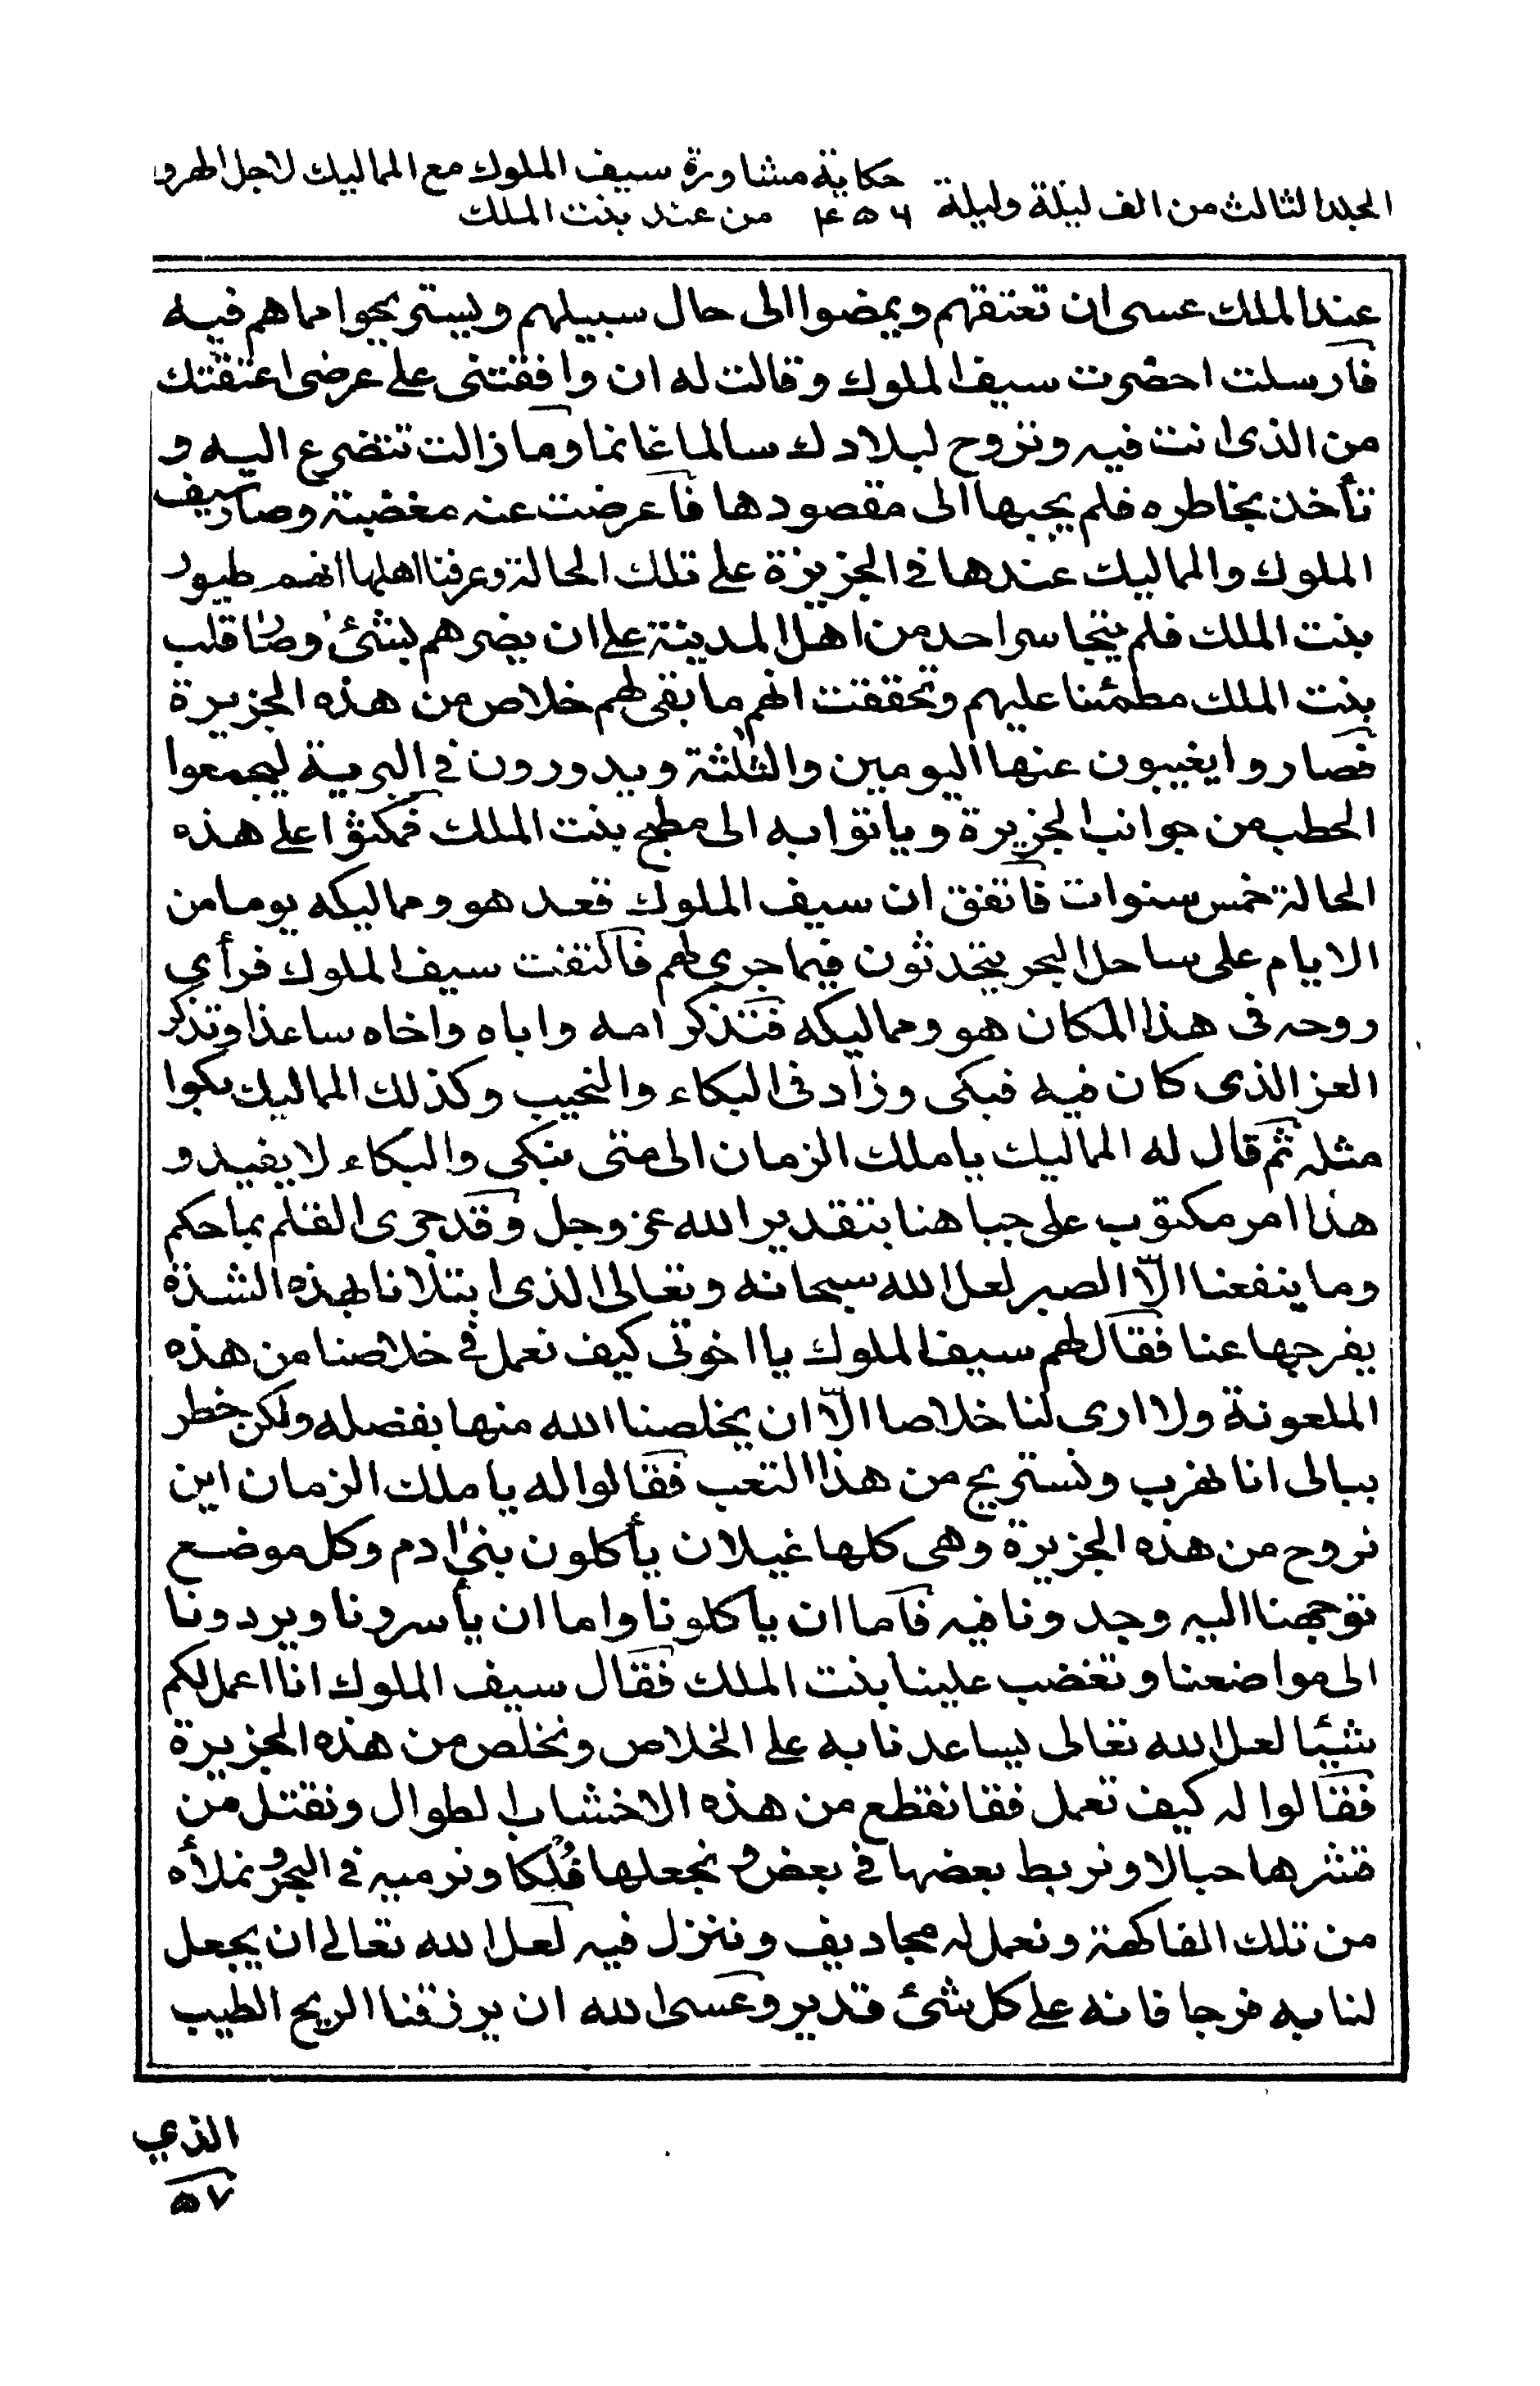 المجلد الثالث من الف ليلة وليلة ٤٥٦ حكاية مشاورة سيف الملوك مع المماليك لاجل الهروب
من عند بنت الملك
عند الملك عسى ان تعتقهم ويمضوا الى حال سبيلهم ويستريحوا مما هم فيه
فارسلت احضرت سيف الملوك وقالت له ان وافقتنى على غرضى اعتقتك
من الذى انت فيه وتروح لبلادك سالما غانما وما زالت تتضرع اليه و
تأخذ بخاطره فلم يجبها الى مقصودها فاعرضت عنه مغضبة وصار سيف
الملوك والمماليك عندها فى الجزيرة على تلك الحالة وعرفنا اهلها انهم طيور
بنت الملك فلم يتجاسر احد من اهل المدينة على ان يضرهم بشئ وصار قلب
بنت الملك مطمئنا عليهم وتحققت انهم ما بقى لهم خلاص من هذه الجزيرة
فصاروا يغيبون عنها اليومين والثلثة ويدورون فى البرية ليجمعوا
الحطب من جوانب الجزيرة وياتوا به الى مطبخ بنت الملك فمكثوا على هذه
الحالة خمس سنوات فاتفق ان سيف الملوك قعد هو ومماليكه يوما من
الايام على ساحل البحر يتحدثون فيما جرى لهم فالتفت سيف الملوك فرأى
روحه فى هذا المكان هو ومماليكه فتذكر امه واباه واخاه ساعدا وتذكر
العز الذى كان فيه فبكى وزاد فى البكاء والنحيب وكذلك المماليك بكوا
مثله ثم قال له المماليك ياملك الزمان الى متى نبكى والبكاء لا يفيد و
هذا امر مكتوب على جباهنا بتقدير الله عز وجل وقد جرى القلم بما حكم
وما ينفعنا الّا الصبر لعل الله سبحانه وتعالى الذى ابتلانا بهذه الشدة
يفرجها عنا فقال لهم سيف الملوك يا اخوتى كيف نعمل فى خلاصنا من هذه
الملعونة ولا ارى لنا خلاصا الّا ان يخلصنا الله منها بفضله ولكن خطر
ببالى انا نهرب ونستريح من هذا التعب فقالوا له ياملك الزمان اين
نروح من هذه الجزيرة وهى كلها غيلان يأكلون بنى ادم وكل موضع
توجهنا اليه وجدونا فيه فاما ان ياكلونا واما ان يأسرونا ويردونا
الى مواضعنا وتغضب علينا بنت الملك فقال سيف الملوك انا اعمل لكم
شيئا لعل الله تعالى يساعدنا به على الخلاص ونخلص من هذه الجزيرة
فقالوا له كيف تعمل فقا نقطع من هذه الاخشاب الطوال ونفتل من
قشرها حبالا ونربط بعضها فى بعض و نجعلها فُلْكا ونرميه فى البحر ونملأه
من تلك الفاكهة ونعمل له مجاديف وننزل فيه لعل الله تعالى ان يجعل
لنا به فرجا فانه على كل شئ قدير وعسى الله ان يرزقنا الريح الطيب
الذي
٥٧